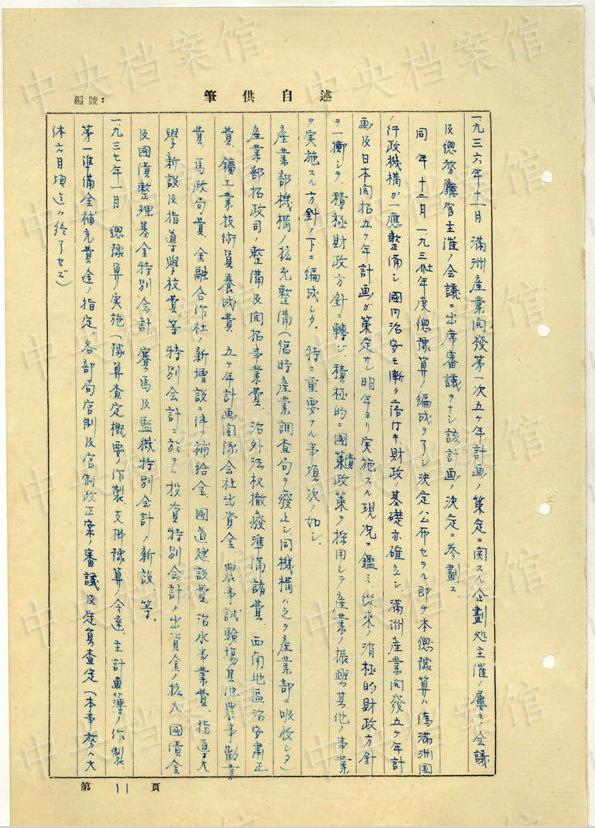 述自供筆
編號：
一九三六年十一月 満洲産業開發第一次五ヶ年計画ノ策定ニ関スル企劃処主催ノ屢々ノ会議
及總務廳官主催ノ会議ニ出席審議ヲナシ該計画ノ決定ニ参劃ス
同年十二月一九三 年度總豫算ノ編成ヲ了シ決定公布セラル即チ本總豫算ハ偽満洲国
ノ行政機構ガ一應整備シ國内治安モ漸ク 財政ノ基礎亦確 シ満洲産業開發五ヶ年計
画及日本開拓五ヶ年計画ガ策定サレ明年ヨリ実施スル現況ニ鑑ミ従来ノ消極的財政方針
ヲ一擲シテ積極財政方針ニ轉ジ積極的ニ國債政策ヲ採用シテ産業ノ振興其他ノ事業
ヲ実施スル方針ノ下ニ編成シタ。特ニ重要ナル事項次ノ如シ．
産業部機構ノ拡充整備（臨時産業調査局ヲ廢止シ同機構ハ之ヲ産業部ニ吸收シタ）
産業部拓政司ノ整備及開拓事業費 治外法权撤廢準備諸費 西南地區治安肅正
費 鑛工業技術員養成費 五ヶ年計画関係会社出資金 農事試驗場其他農事勧業
費 馬政局費 金融合作社ノ新增設ニ伴フ補給金 國道建設費 治水事業費 指導大
學新設及指導學校費等 特別会計ニ於テハ投資特別会計ノ出資金ノ拡大 國債金
及國債整理基金特別会計 賽馬及監獄特別会計ノ新設 等．
一九三七年一月 總豫算ノ実施（豫算査定概要ノ作製 支辨豫算ノ令達 主計画簿ノ作製
第一準備金補充費途ノ指定 各部局官制及官制改正案ノ審議及定員査定（本事務ハ大
体六月頃迄ニ終了セズ）
第 11 頁
中央档案馆